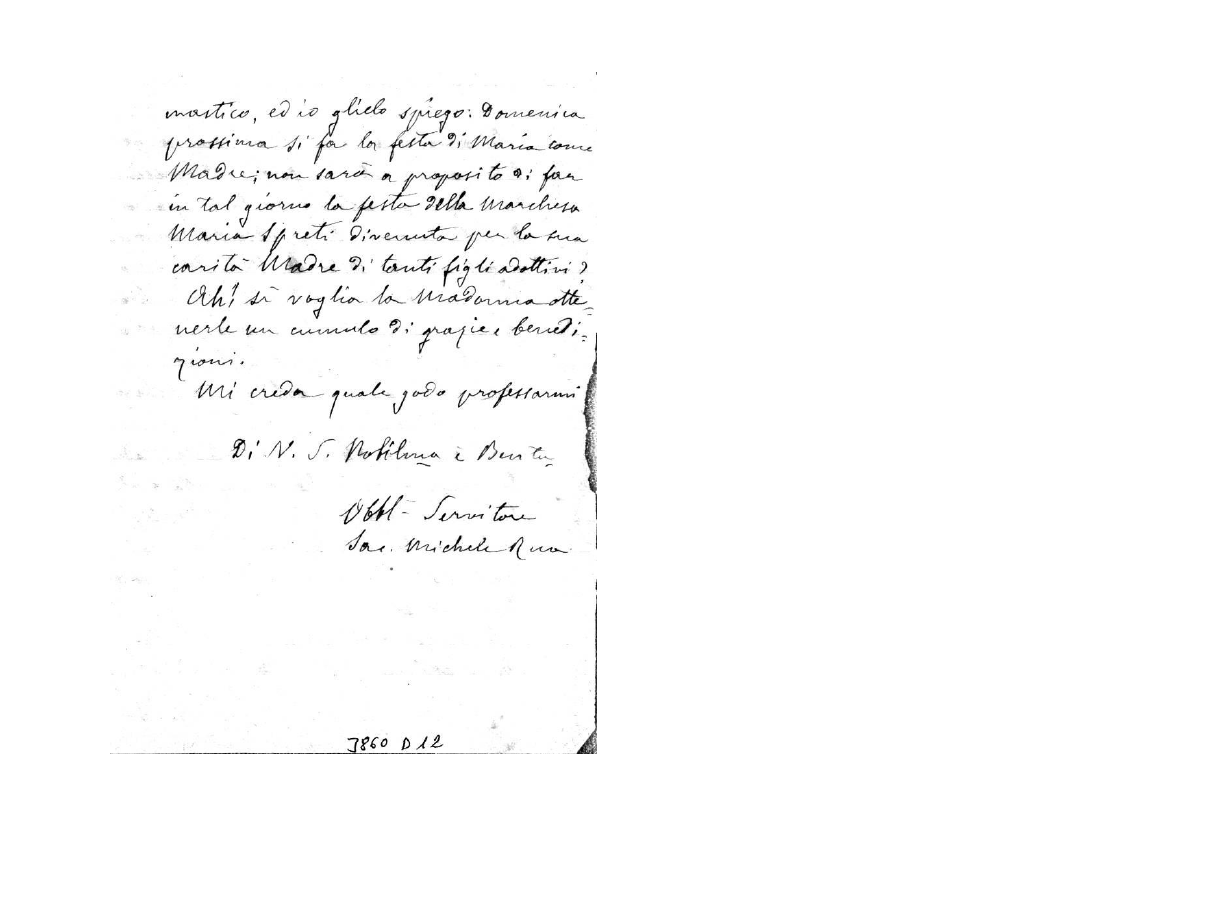 mastico, ed io glielo spiego: Domenica
prossima si fa la festa di Maria come
Madre; non sarà a proposito di far
in tal giorno la festa della Marchesa
Maria Spreti divenuta per la sua
carità Madre di tanti figli adottivi?
Ah! sì voglia la Madonna otte=
nerle un cumulo di grazie e benedi=
zioni.
Mi creda quale godo professarmi
Di V. S. Nobilma e Bentа
Obbl- Servitore
Sac. Michele Rua
3860 D 12